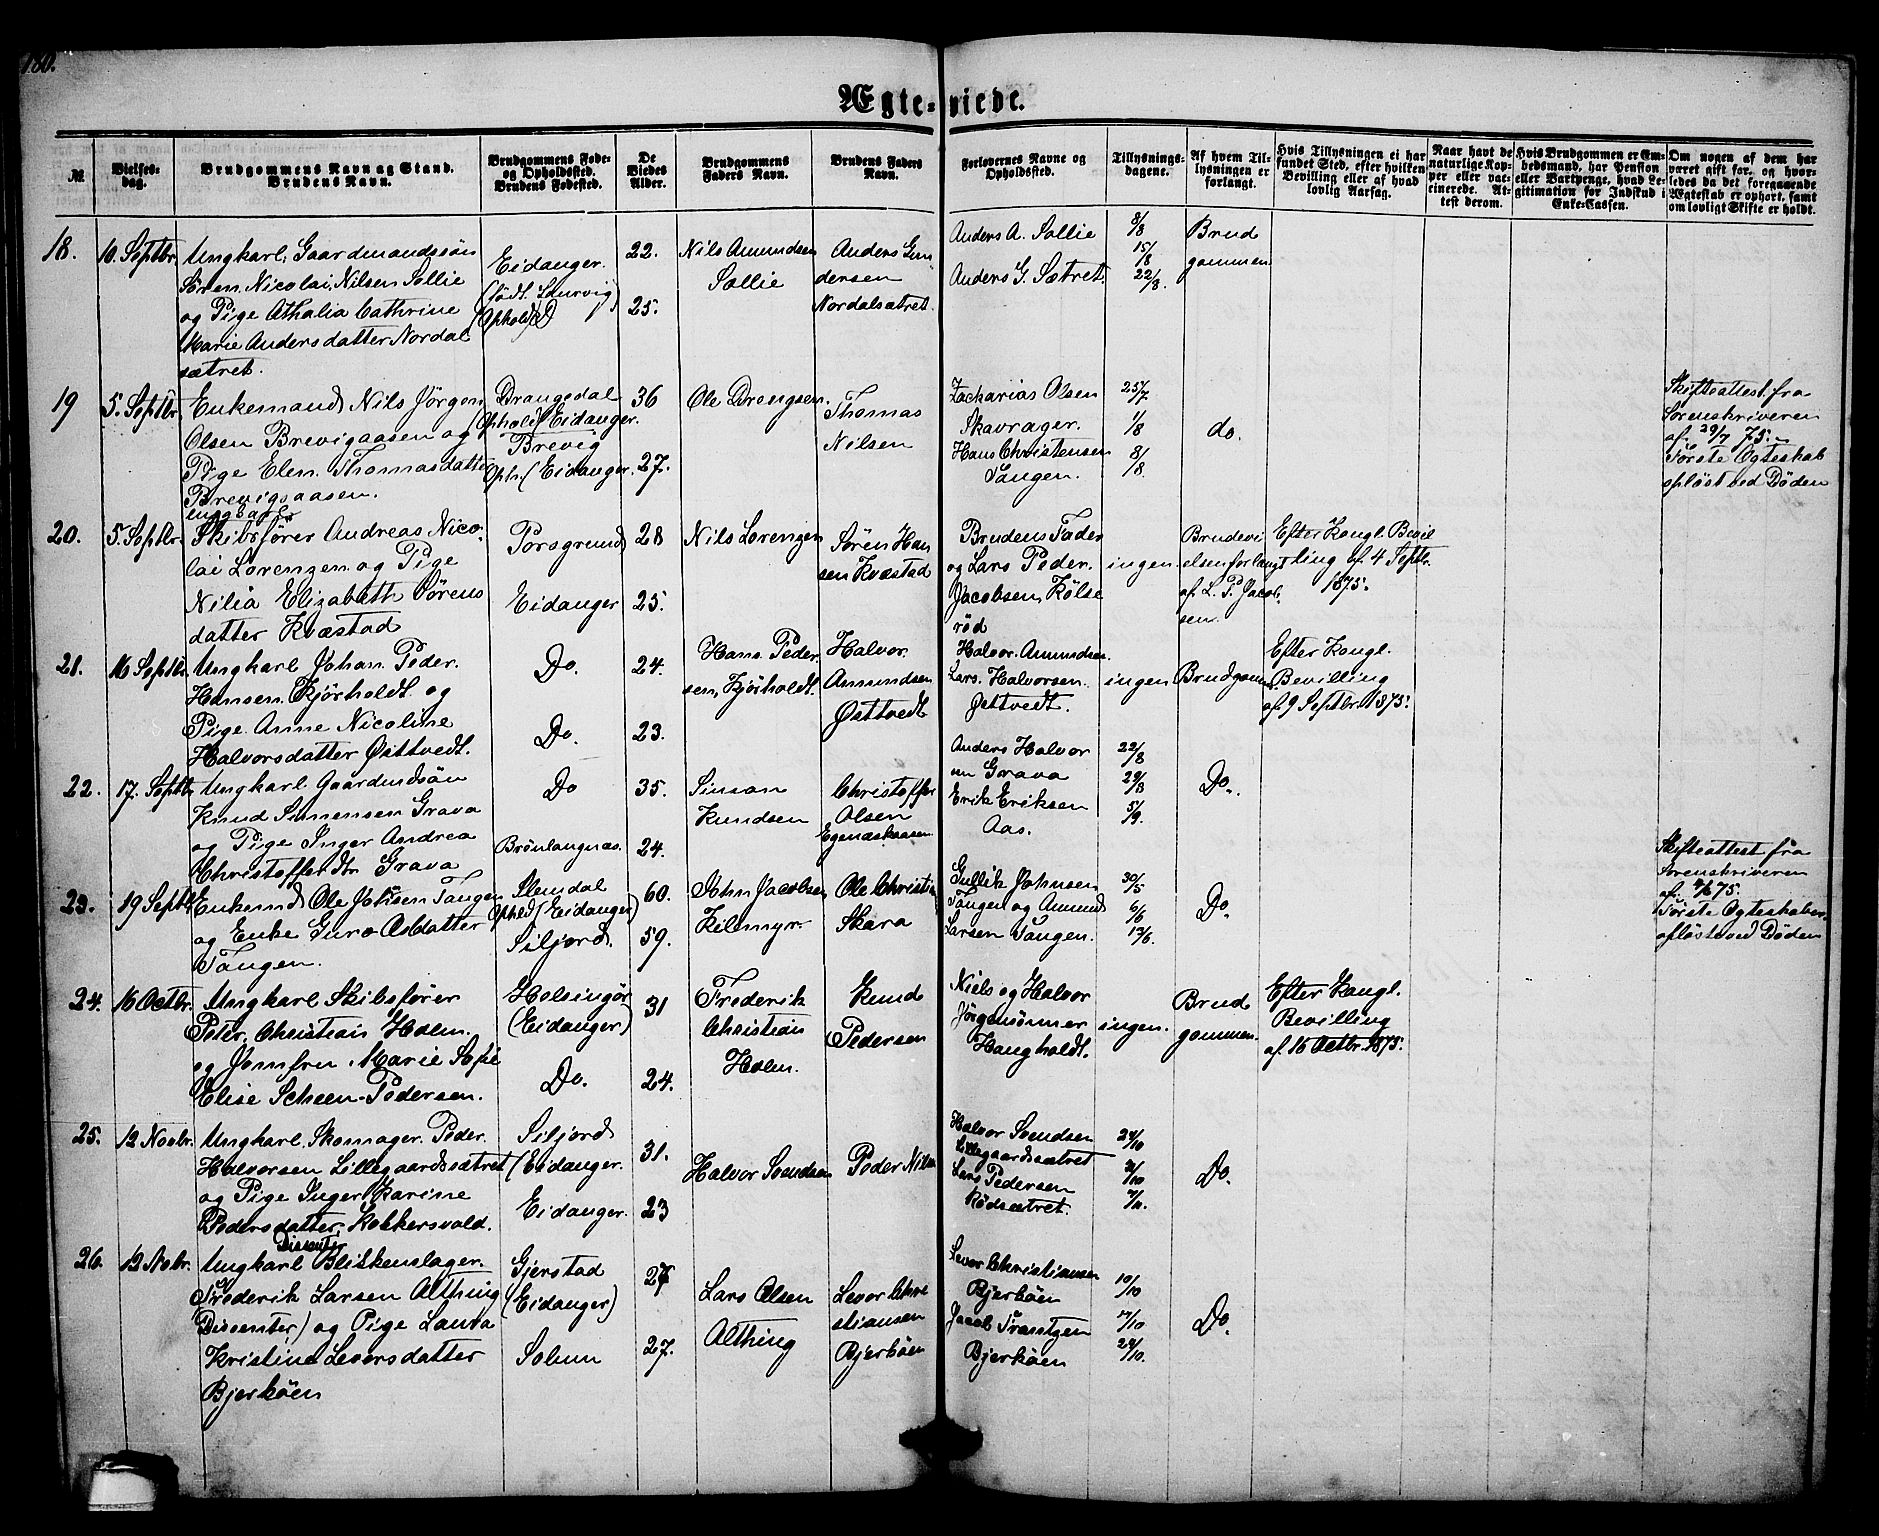 180.
Ægte-viede.
№
Vielses-
dag.
Brudgommens Navn og Stand.
Brudens Navn.
Brudgommens Føde-
og Opholdssted.
Brudens Fødested.
De
Viedes
Alder.
Brudgommens
Faders Navn.
Brudens Faders
Navn.
Forlovernes Navne og
Opholdssted.
Tillysnings-
dagene.
Af hvem Til-
lysningen er
forlangt.
Hvis Tillysningen ei har
fundet Sted, efter hvilken
Bevilling eller af hvad
lovlig Aarsag.
Naar havt de
naturlige Kop-
per eller vac-
cinerede. At-
test derom.
Hvis Brudgommen er Em-
bedsmand, har Pension
eller Vartpenge, hvad Le-
gitimation for Indskud i
Enke-Cassen.
Om nogen af dem har
været gift før, og hvor-
ledes da det foregaaende
Ægteskab er ophørt, samt
om lovligt Skifte er holdt.
18.
10. Septbr.
Ungkarl, Gaardmandssøn
Søren Nicolai Nilsen Sollie
og Pige Athalia Cathrine
Marie Andersdatter Nordal
sætret.
Eidanger.
(født Laurvig)
(Ophold D
22.
25.
Nils Amundsen
Sollie
Anders Gun
dersen
Nordalsætret.
Anders A. Sollie
Anders G. Sætret.
8/8
15/8
22/8.
Brud
gommen
19
5. Septbr.
Enkemand Nils Jørgen
Olsen Brevigaasen og
Pige Elen Thomasdatter
Brevigsaasen.
Drangedal
(Ophold Eidanger.
Brevig
Oph. (Eidanger.
36
27.
Ole Drengsen.
Thomas
Nilsen
Zacharias Olsen
Skavrager.
Hans Christensen
Tangen.
25/7
1/8
8/8
do.
Skifteattest fra
Sorenskriveren
af 29/7 75.
Første Ægteskab
opløst ved Døden
20.
5. Septbr.
ungkarl
Skibsfører Andreas Nico-
lai Lorenzen og Pige
Nilia Elizabeth Sørens
datter Kvæstad
Porsgrund
Eidanger
28
25.
Nils Lorenzen
Søren Han
sen Kvæstad
Brudens Fader
og Lars Peder
Jacobsen, Kölse
rød
ingen
Brudevi
elsen forlangt
af L. P. Jacob-
sen.
Efter Kongl. Bevil
ling af 4 Septbr.
1875.
21.
16 Septbr.
Ungkarl Johan Peder
Hansen Kjørholdt og
Pige Anne Nicoline
Halvorsdatter Østtvedt.
Do.
Do.
24.
23.
Hans Peder
sen Kjørholdt.
Halvor
Amundsen
Østtvedt
Halvor Amundsen
Lars Halvorsen
Østtvedt.
ingen
Brudgomm.
Efter Kongl.
Bevilling
af 9 Septbr. 1875.
22.
17. Septbr.
Ungkarl Gaardmdsøn
Knud Simensen Grava
og Pige Inger Andrea
Christoffersdtr Grava
Do
Brönlangnæs.
35.
24.
Simon
Kundsen
Christoffer
Olsen
Anders Halvor
sen Grava
Erik Eriksen
Aas.
22/8
29/8
5/9.
Do.
23.
19 Septbr.
Enkemd Ole Johsen Tangen
og Enke Guro Oldatter
Tangen.
Slemdal
Ophold (Eidanger)
Siljord.
60.
59.
John Jacobsen
Kilemyr.
Ole Christia
Skara
Gullik Johnsen
Tangen og Amund
Larsen Tangen.
30/5
6/6
13/6.
Do.
Skifteattest fra
Sorenskriveren
Første Ægteskaber
opløst ved Døden
24.
16 Octbr.
Ungkarl Skibsfører
Peter Christian Holm
og Jomfru Marie Sofie
Elise Scheen-Pedersen.
Helsingør
(Eidanger)
Do.
31
24.
Frederik
Christian
Holm.
Knud
Pedersen
Niels og Halvor
Jørgensønner
Haugholdt.
ingen.
Brud
gommen.
Efter Kongl.
Bevilling
af 16 Octbr. 1875.
25.
12 Novbr.
Ungkarl Skomager Peder
Halvorsen Lillegaardssætret
og Pige Inger Karine
Pedersdatter, Kokkersvold.
Siljord
(Eidanger.
Eidanger.
31.
23
Halvor Svendsen
Peder Nilsen
Halvor Svendsen
Lillegaardssætret
Lars Pedersen
Rødsætret.
24/10
31/10
7/11.
Do.
26.
12 Nobr.
Dissenter
Ungkarl Blikkenslager
Frederik Larsen Althing
Dissenter) og Pige Laura
Kristine Leversdatter
Bjerkøen
Gjerstad
(Eidanger)
Solum
27
27.
Lars Olsen
Althing
Levor Chri
stiansen
Bjerkøen
Levor Christiansen
Bjerköen
Jacob Frantzen
Bjerköen
10/10
17/10
24/10.
Do.